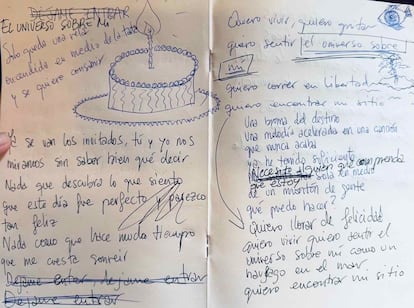 DEJAME ENTRAR
EL UNIVERSO SOBRE MI
Solo queda una vela
encendida en medio de la tarta
y se quiere consumir
Ya se van los invitados, tú y yo nos
miramos sin saber bien qué decir
Nada que descubra lo que siento
que este día fue perfecto y parezco
tan feliz
Nada como que hace mucho tiempo
que me cuesta sonreir
Dejame entrar dejame entrar
Dejame entrar
Quiero vivir, quiero gritar
quiero sentir el universo sobre
mi
quiero correr en libertad
quiero encontrar mi sitio
Una broma del destino
Una melodía acelerada en una canción
que nunca acaba
ya he tenido suficiente
Necesito alguien que comprenda
que estoy sola en medio
de un montón de gente
qué puedo hacer?
Quiero llorar de felicidad
quiero vivir quiero sentir el
universo sobre mi como un
naufrago en el mar
quiero encontrar mi sitio